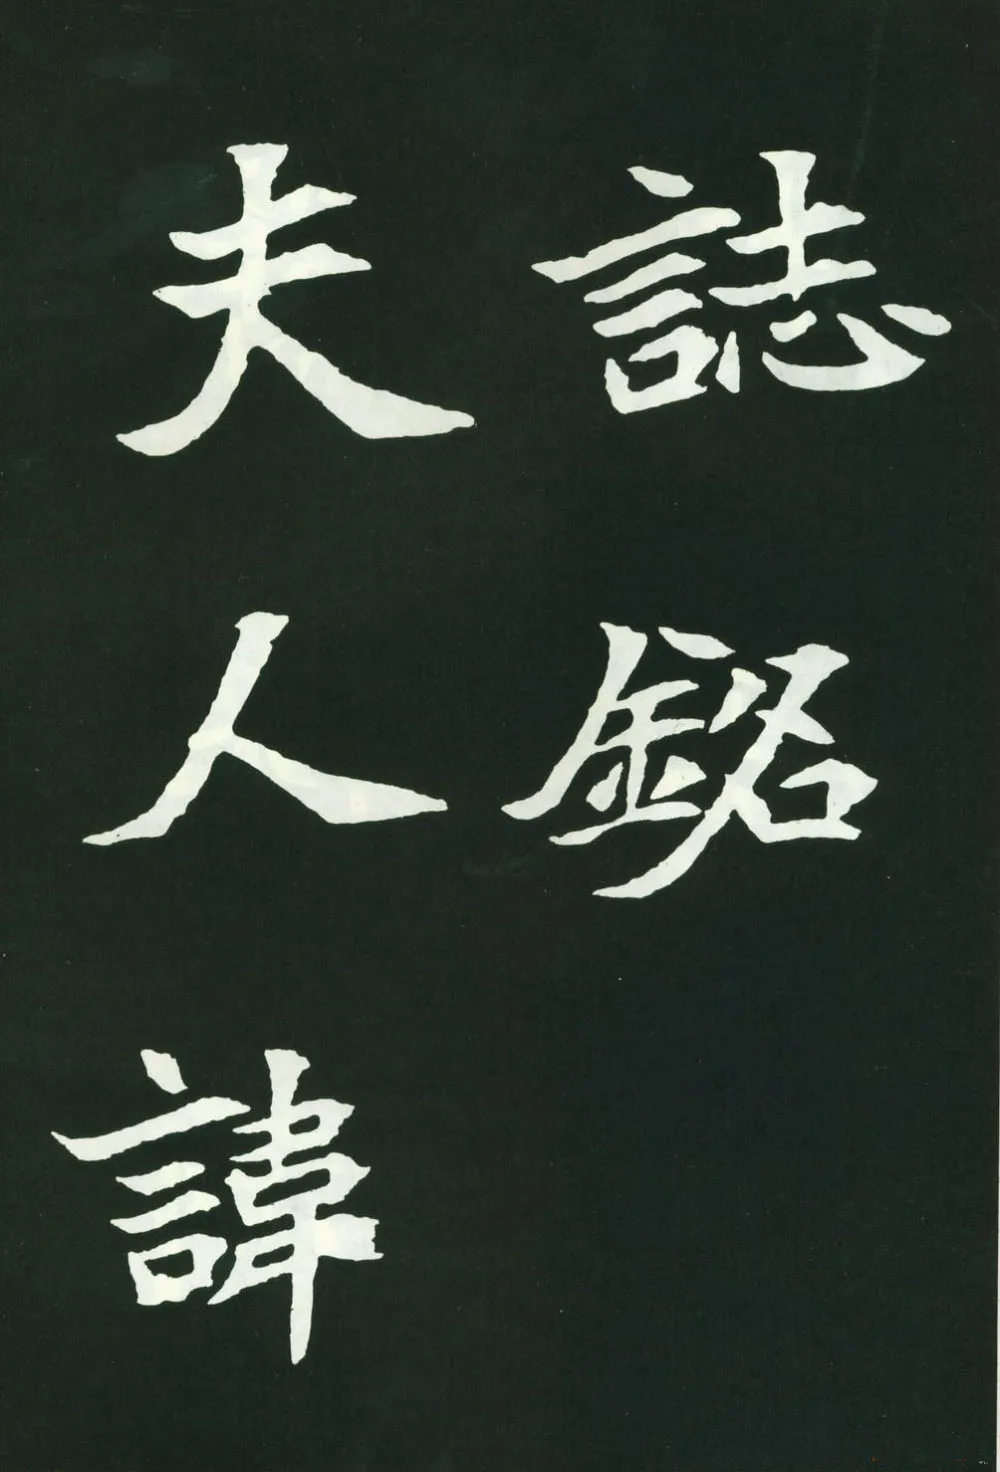 誌銘
夫人諱